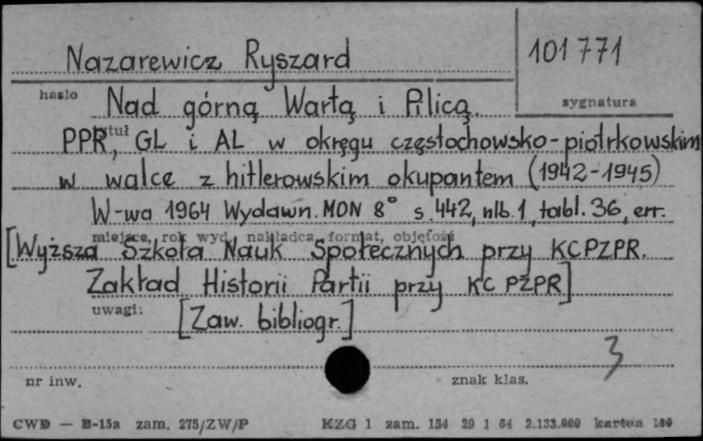 Nazarewicz Ryszard
101771
hasło
Nad górną Wartą i Pilicą.
sygnatura
tytuł
PPR, GL i AL w okręgu częstochowsko-piotrkowskim
w walce z hitlerowskim okupantem (1942-1945)
W-wa 1964 Wydawn. MON 8° s. 442, nlb. 1, tabl. 36, err.
miejsce, rok wyd. nakładca, format, objętość
[Wyższa Szkoła Nauk Społecznych przy KC PZPR.
Zakład Historii Partii przy KC PZPR]
uwagi:
[Zaw. bibliogr.]
3
nr inw.
znak klas.
CWD — B-15a zam. 275/ZW/P
KZG 1 zam. 154 29 1 64 2.133.000 karton